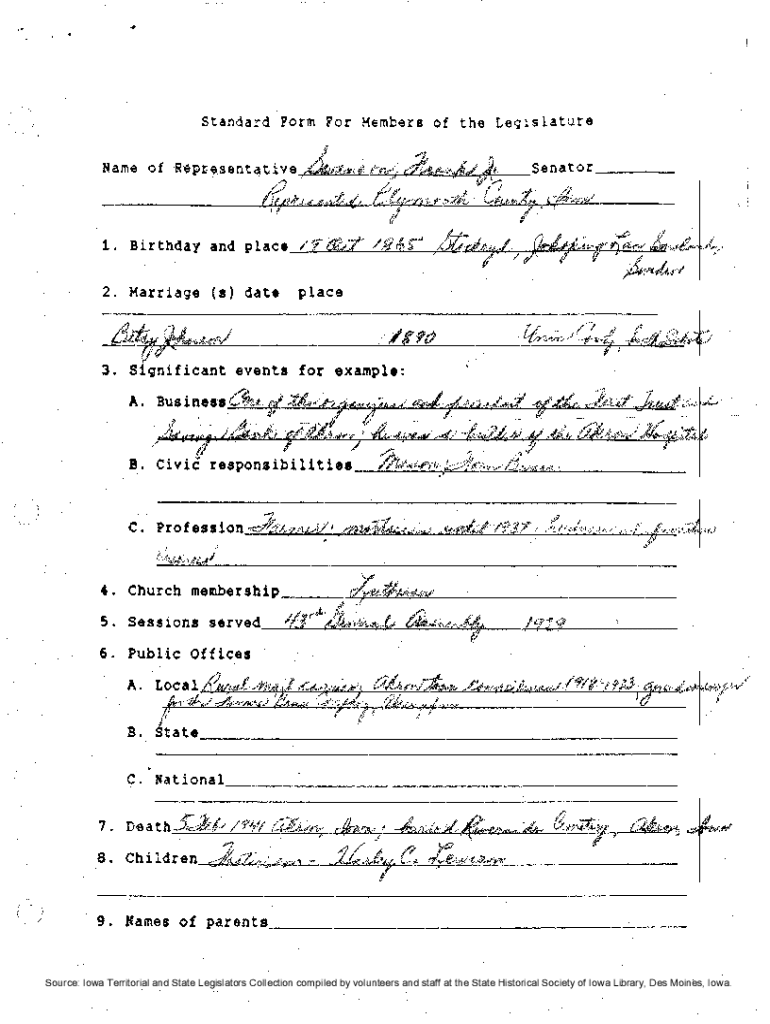 Standard Form For Members of the Legislature
Name of Representative Senator
Represented Plymouth County, Iowa
1. Birthday and place 1865 Sweden
2. Marriage (s) date place
Betsy Johnson 1890 Union County, South Dakota
3. Significant events for example:
A. Business One of the organizers and president of the First Trust and
Savings Bank of Akron; he was a builder of the Akron Hospital
B. Civic responsibilities Mason;
C. Profession Farmer; until 1937
4. Church membership Lutheran
5. Sessions served 43rd General Assembly 1929
6. Public Offices
A. Local Rural mail carrier; Akron town councilman 1918-1923;
for the
B. State
C. National
7. Death 5 Feb 1941 Akron, Iowa; buried Riverside Cemetery, Akron, Iowa
8. Children
9. Names of parents
Source: Iowa Territorial and State Legislators Collection compiled by volunteers and staff at the State Historical Society of Iowa Library, Des Moines, Iowa.